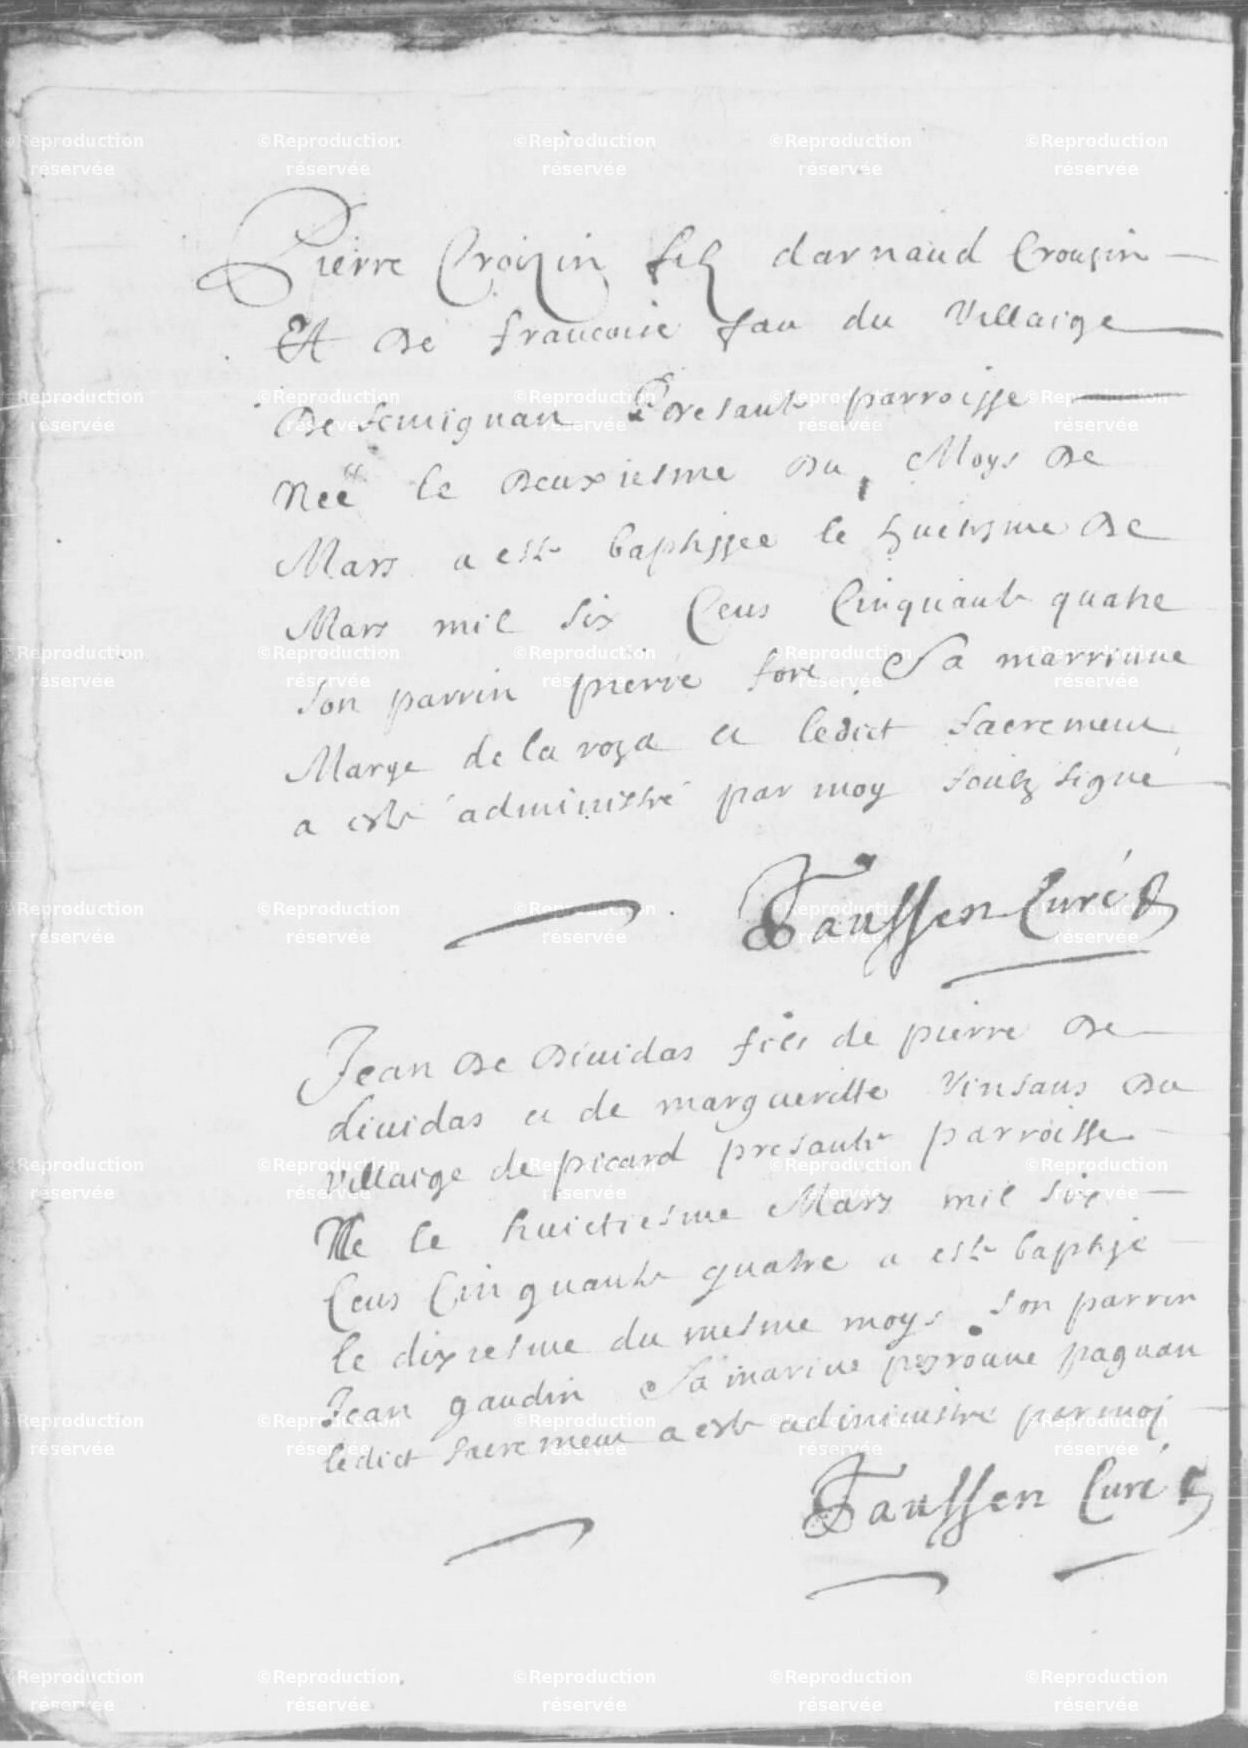 Pierre Croizin filz darnaud Crouzin
Et De francoise fau du Villaige
De Semignan Presante parroisse
Nee le Deuxiesme Du Moys De
Mars a este baptissee le huitisme De
Mars mil six Cens Cinquante quatre
son parrin pierre fore Sa marrinne
Marye de la roza et ledict sacrement
a este administré par moy soubz signé
Taussen Curé
Jean De Diuidas fils de pierre De
diuidas et de margueritte Vinsans Du
villaige de picard presante parroisse
Ne le huictiesme Mars mil six
Cens Cinquante quatre a este baptisé
le dixiesme du mesme moys son parrin
Jean gaudin Sa marine peyronne paguan
ledict sacrement a este administré par moy
Taussen Curé
©Reproduction réservée